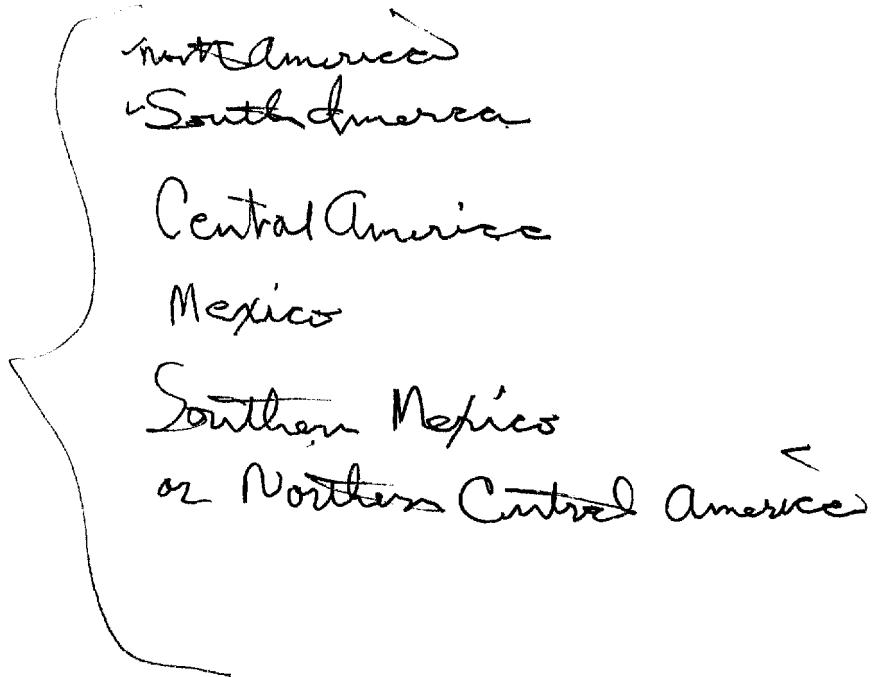 North America
South America
Central America
Mexico
Southern Mexico
or Northern Central America